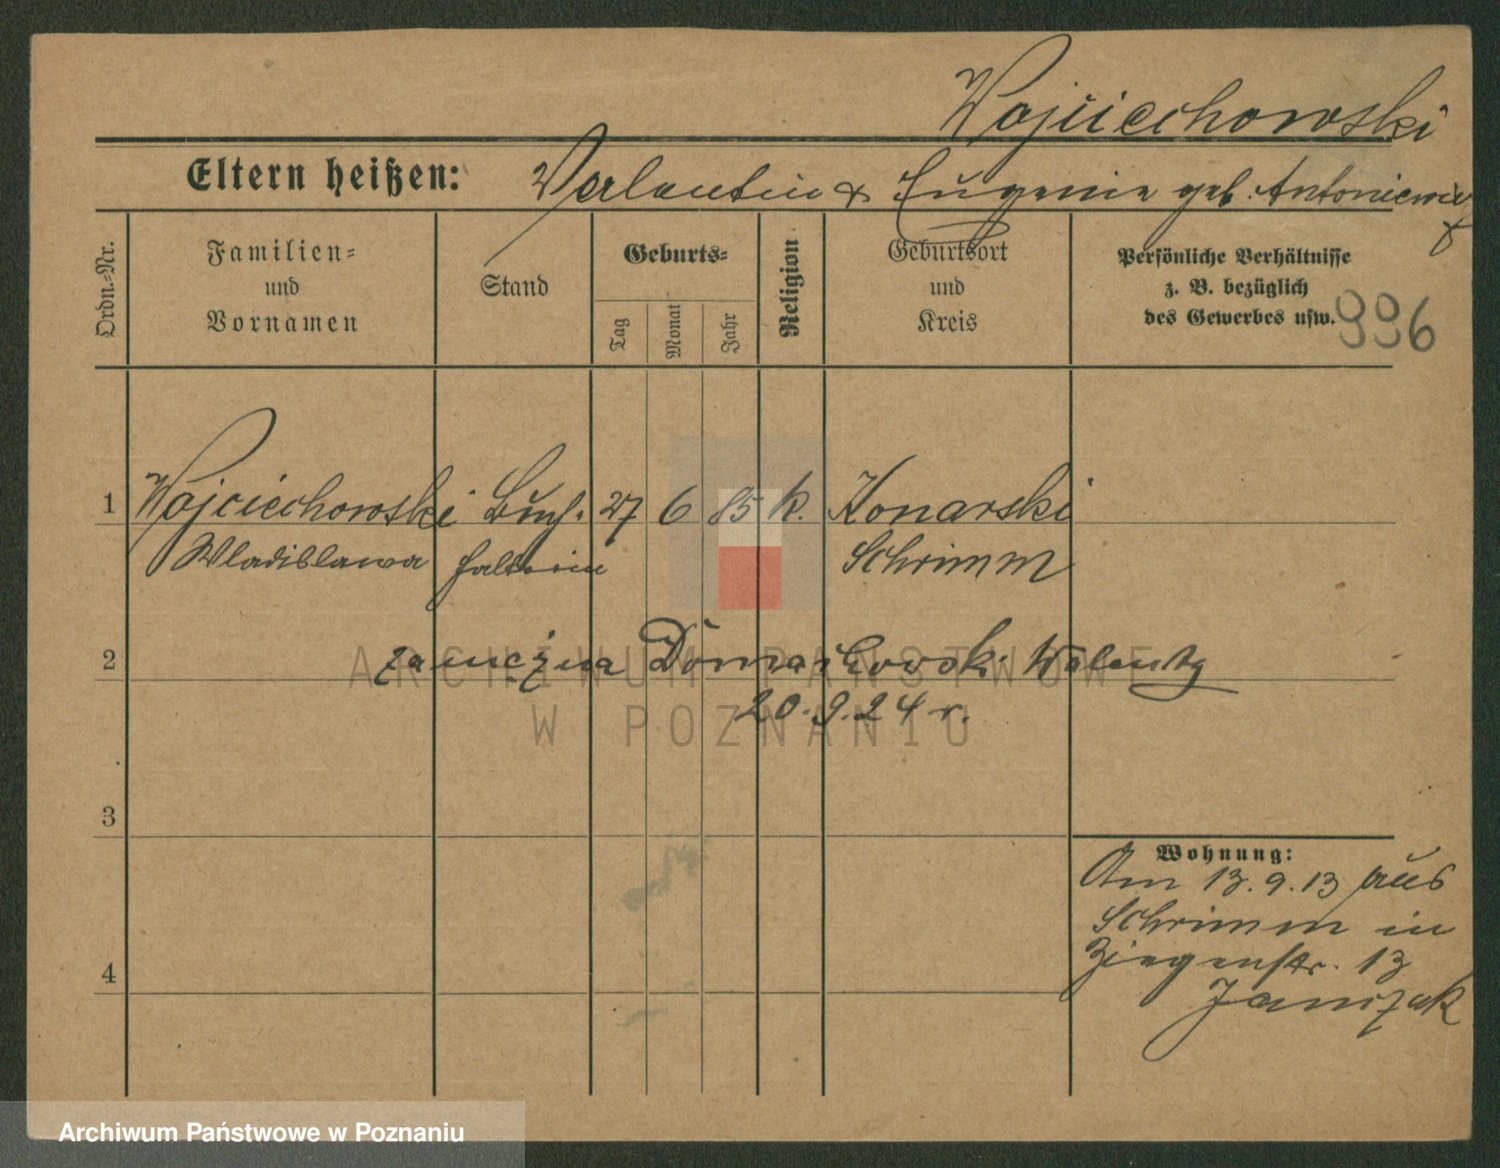 Wojciechowski
Eltern heißen: Valentin & Eugenie geb. Antoniewicz
Ordn.-Nr.
Familien-
und
Vornamen
Stand
Geburts-
Tag
Monat
Jahr
Religion
Geburtsort
und
Kreis
Persönliche Verhältnisse
z. B. bezüglich
des Gewerbes usw.
996
1 Wojciechowski Buch- 27 6 85 k. Konarski
Wladislawa halterin Schrimm
2 zamężna Domańkowski Walenty
20.9.24 r.
3
4
Wohnung:
Am 13.9.13 aus
Schrimm in
Ziegenstr. 13
Janczak
ARCHIWUM PAŃSTWOWE
W POZNANIU
Archiwum Państwowe w Poznaniu